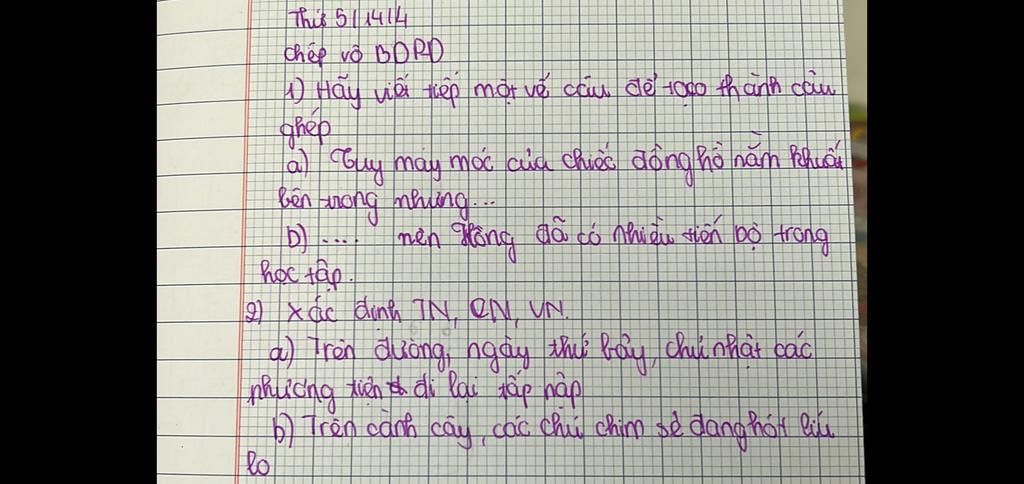 Thứ 5/14/4
chép vô BDRD
1) Hãy viết tiếp một vế câu để tạo thành câu
ghép
a) Tuy máy móc của chiếc đồng hồ nằm khuất
bên trong nhưng...
b) .... nên Hồng đã có nhiều tiến bộ trong
học tập.
2) Xác định TN, CN, VN.
a) Trên đường, ngày thứ bảy, chủ nhật các
phương tiện đi lại tấp nập
b) Trên cành cây, các chú chim sẻ đang hót líu
lo